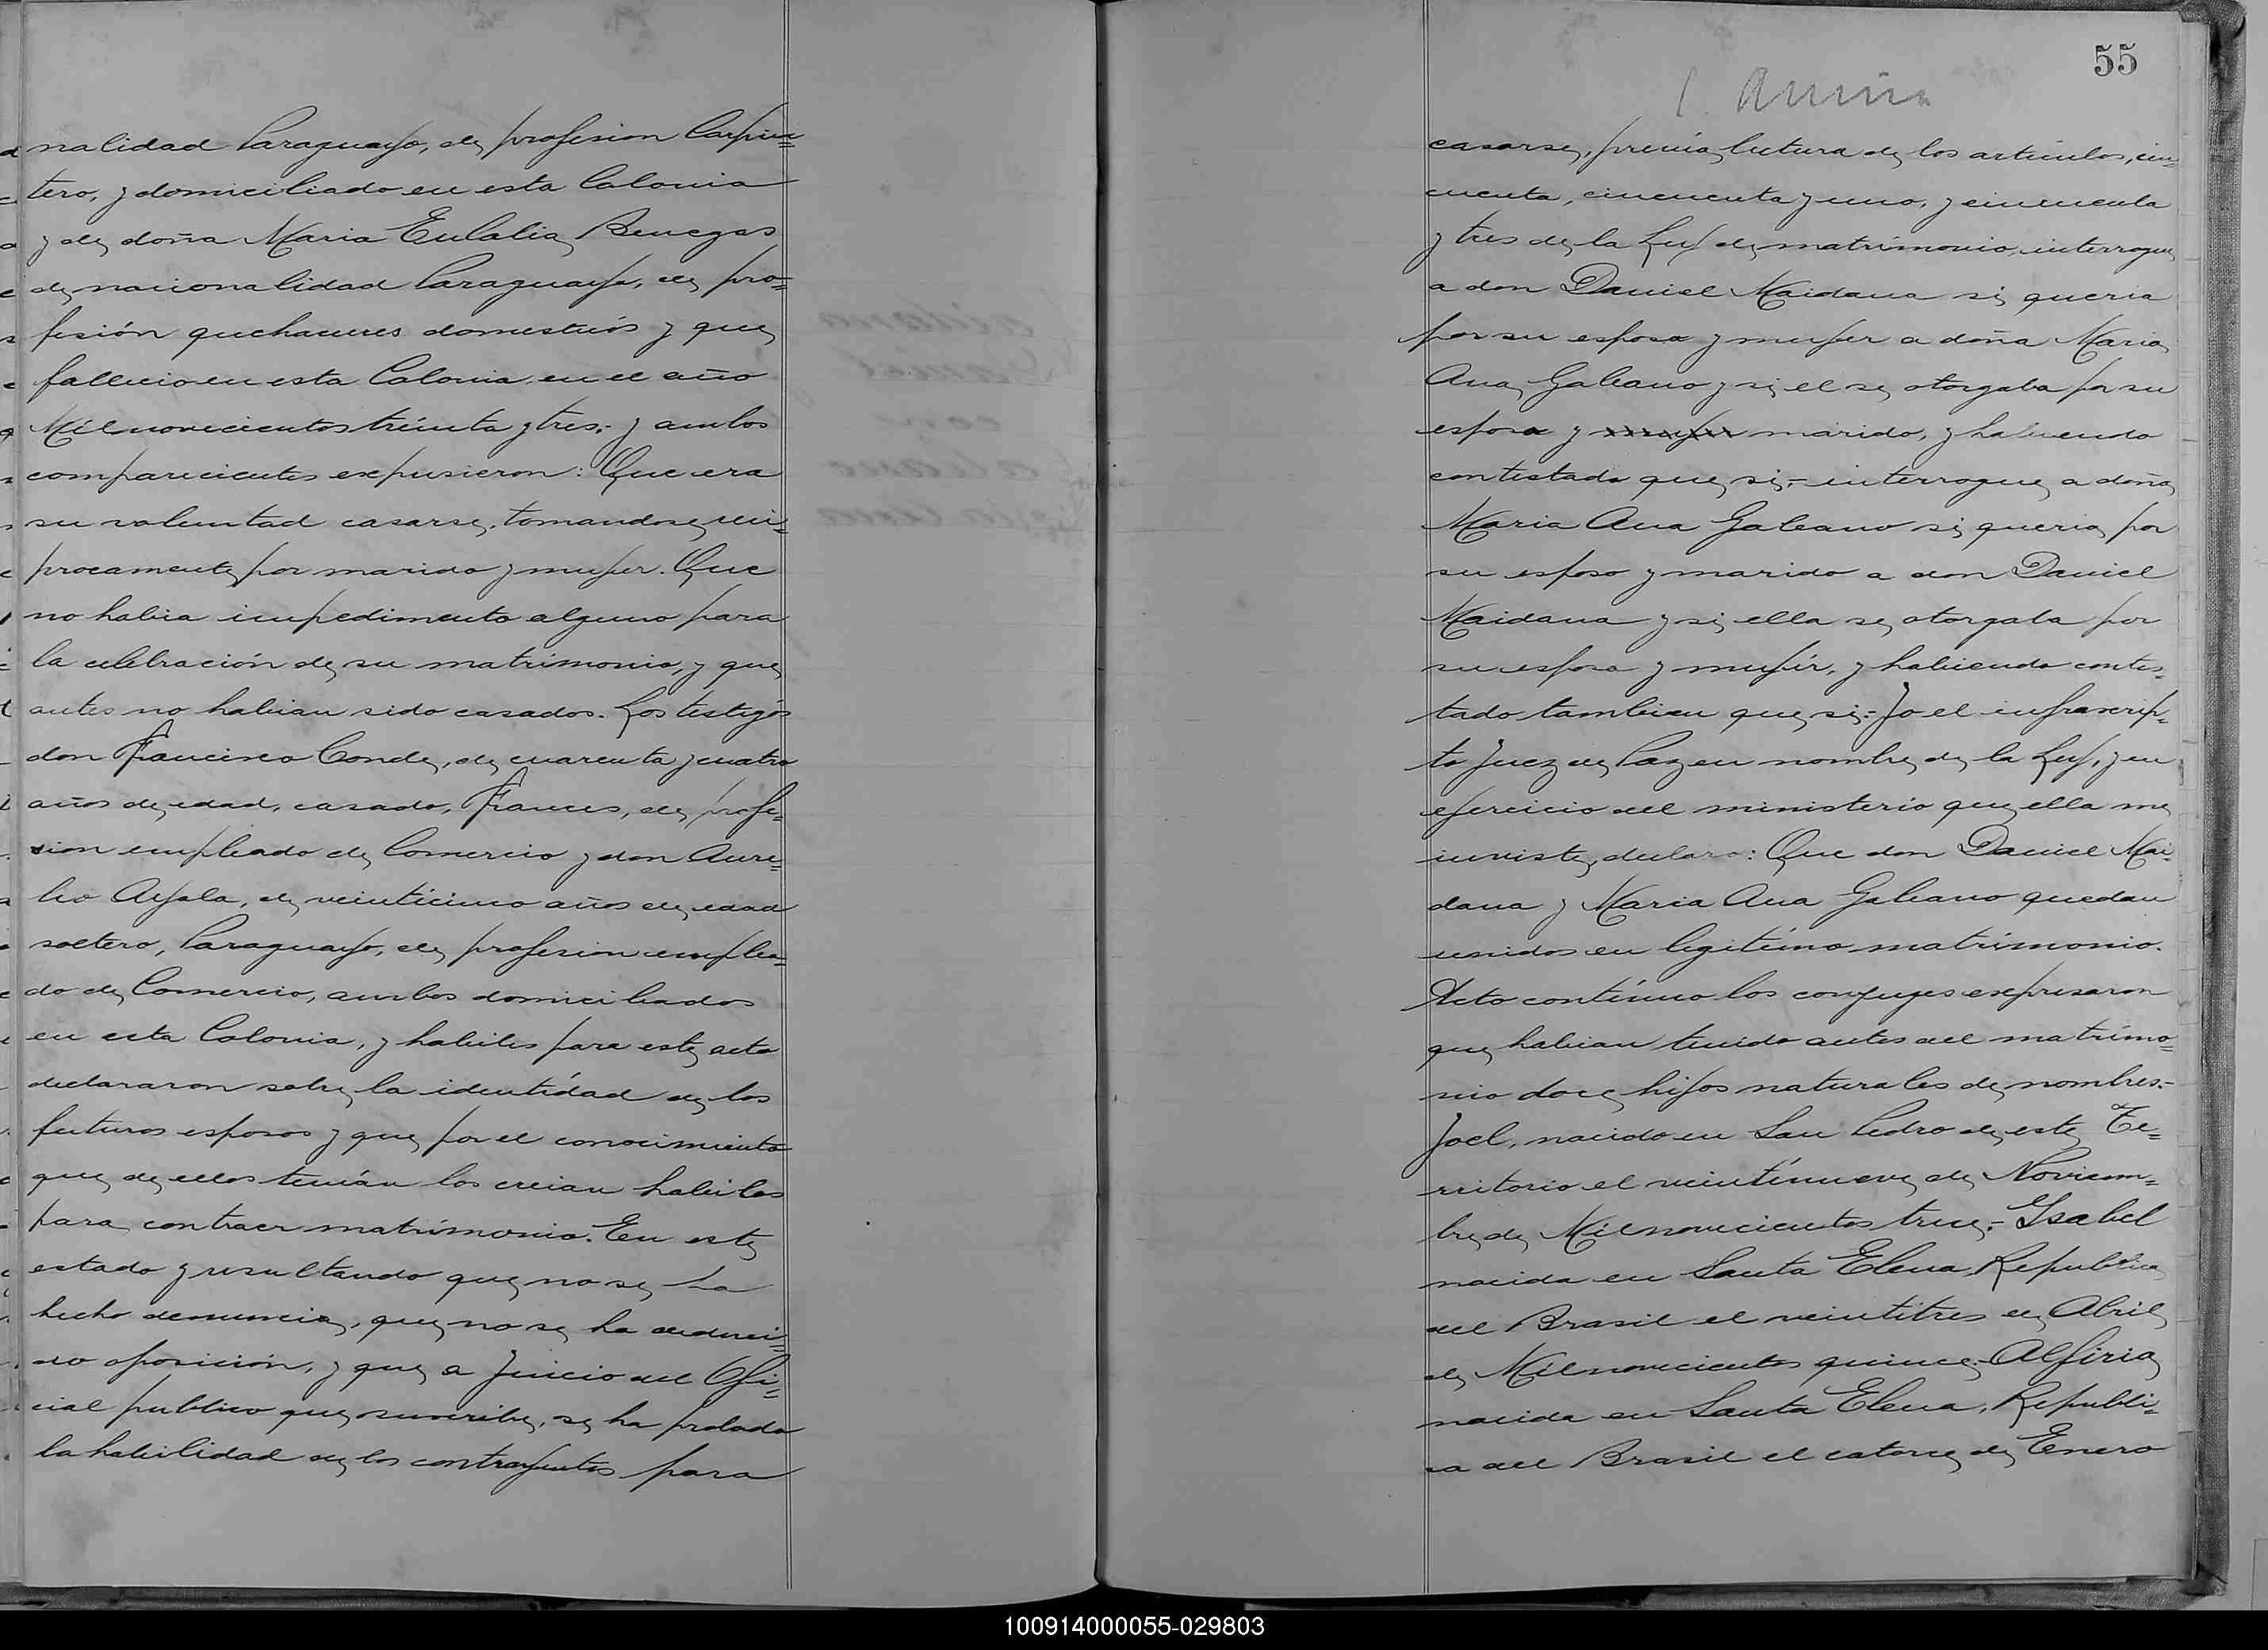 nalidad Paraguayo, de profesion Carpin=
tero, y domiciliado en esta Colonia
y de doña Maria Eulalia Benegas
de nacionalidad Paraguaya, de pro=
fesión quehaceres domesticós y que
fallecio en esta Colonia, en el año
Mil novecientos treinta y tres,- y ambos
comparecientes expusieron: Que era
su voluntad casarse, tomandose reci=
procamente por marido y mujer. Que
no habia impedimento alguno para
la celebración de su matrimonio, y que
antes no habian sido casados. Los testigos
don Francisco Conde, de cuarenta y cuatro
años de edad, casado, Frances, de profe=
sion empleado de Comercio y don Aure=
lio Ayala, de veinticinco años de edad
soltero, Paraguayo, de profesion emplea=
do de Comercio, ambos domiciliados
en esta Colonia, y habiles para este acto
declararon sobre la identidad de los
futuros esposos y que por el conocimiento
que de ellos tenián los creian habiles
para contraer matrimonio. En este
estado y resultando que no se ha
hecho denuncia, que no se ha deduci=
do oposición, y que a juicio del Ofi=
cial publico que suscribe, se ha probado
la habilidad de los contrayentes para
55
casarse, previa lectura de los articulos, cin=
cuenta, cincuenta y uno, y cincuenta
y tres de la Ley de matrimonio, interrogue
a don Daniel Maidana si queria
por su esposa y mujer a doña Maria
Ana Galeano y si el se otorgaba por su
esposo y mujer marido, y habiendo
contestado que si,- interrogue a doña
Maria Ana Galeano si queria por
su esposo y marido a don Daniel
Maidana y si ella se otorgaba por
su esposa y mujer, y habiendo contes=
tado tambien que si,- Yo el infrascrip=
to Juez de Paz en nombre de la Ley, y en
ejercicio del ministerio que ella me
inviste, declaro: Que don Daniel Mai=
dana y Maria Ana Galeano quedan
unidos en legitimo matrimonio.
Acto continuo los conyuges expresaron
que habian tenido antes del matrimo=
nio doce hijos naturales de nombres.-
Joel, nacido en San Pedro de este Te=
rritorio el veintinueve de Noviem=
bre de Mil novecientos trece,- Ysabel
nacida en Santa Elena, Republica
del Brasil el veintitres de Abril
de Mil novecientos quince,- Alfiria
nacida en Santa Elena, Republi=
ca del Brasil el catorce de Enero
100914000055-029803